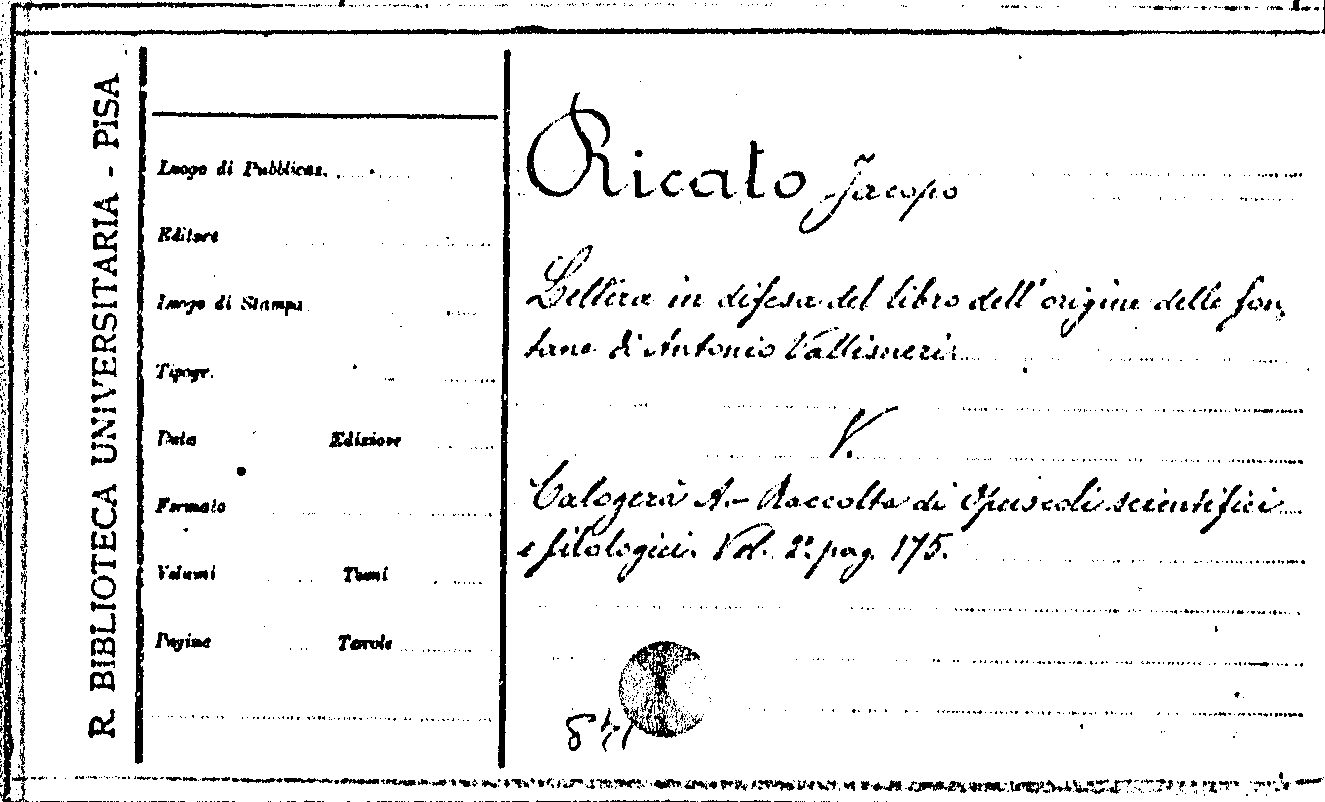 R. BIBLIOTECA UNIVERSITARIA - PISA
Luogo di Pubblicaz.
Editore
Luogo di Stampa
Tipogr.
Data Edizione
Formato
Volumi Tomi
Pagine Tavole
Ricato Jacopo
Lettera in difesa del libro dell'origine delle fon
tane di Antonio Vallisneri.
V.
Calogerà A. - Raccolta di Opuscoli scientifici
e filologici. Vol. 2º pag. 175.